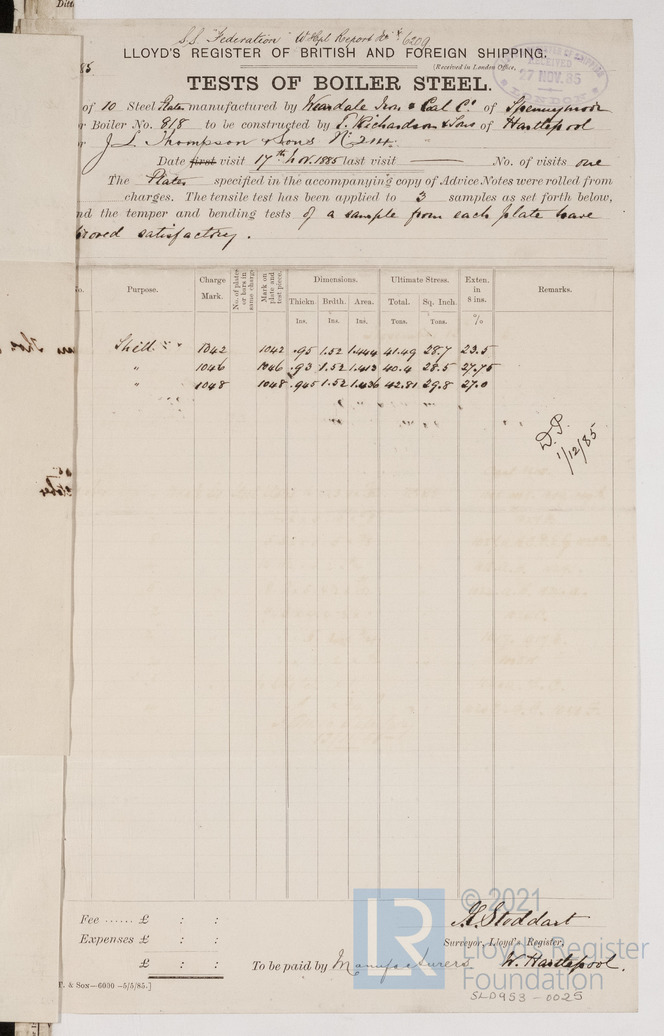 S.S. "Federation" W Hpl Report No 6209
LLOYD'S REGISTER OF BRITISH AND FOREIGN SHIPPING.
(Received in London Office,
RECEIVED
27 NOV. 85
LONDON
85
TESTS OF BOILER STEEL.
of 10 Steel Plates manufactured by Weardale Iron & Coal Co. of Spennymoor
Boiler No. 818 to be constructed by T. Richardson & Sons of Hartlepool
J L Thompson & Sons No 214.
Date first visit 17th Nov. 1885 last visit — No. of visits one
The Plates specified in the accompanying copy of Advice Notes were rolled from
charges. The tensile test has been applied to 3 samples as set forth below,
nd the temper and bending tests of a sample from each plate have
proved satisfactory.
o. Purpose. Charge Mark. No. of plates or bars in same charge Mark on plate and test piece. Dimensions. Ultimate Stress. Exten. in 8 ins. Remarks.
Thickn. Brdth. Area. Total. Sq. Inch.
Ins. Ins. Ins. Tons. Tons. %
Shell 1042 1042 .95 1.52 1.444 41.49 28.7 23.5
" 1046 1046 .93 1.52 1.413 40.4 28.5 27.75
" 1048 1048 .945 1.52 1.436 42.81 29.8 27.0
D.P.
1/12/85
Fee ...... £ : :
Expenses £ : :
£ : :
To be paid by Manufacturers
Stoddart
Surveyor, Lloyd's Register,
W. Hartlepool.
T. & Son—6000 —5/5/85.]
© 2021
LR
Lloyd's Register
Foundation
SLD953-0025
Ditt